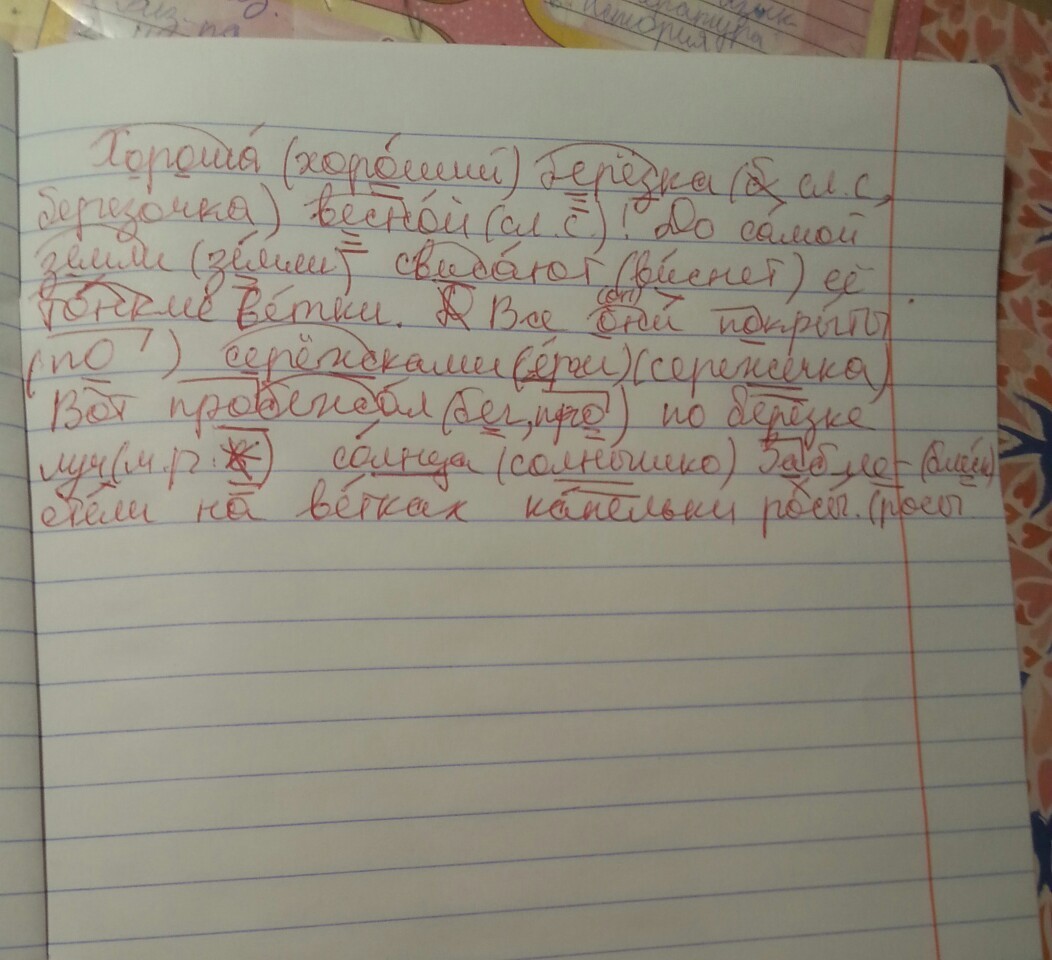 литература
история
Хороша (хороший) берёзка (сл.с,
березочка) весной (сл.с.)! До самой
земли (земли) свисают (виснет) её
тонкие ветки. Все они покрыты
(по) серёжками (серёжечка)
Вот пробежал (бег, про) по берёзке
луч (м.р.) солнца (солнышко) Забле- (блеск)
стели на ветках капельки росы. (росы